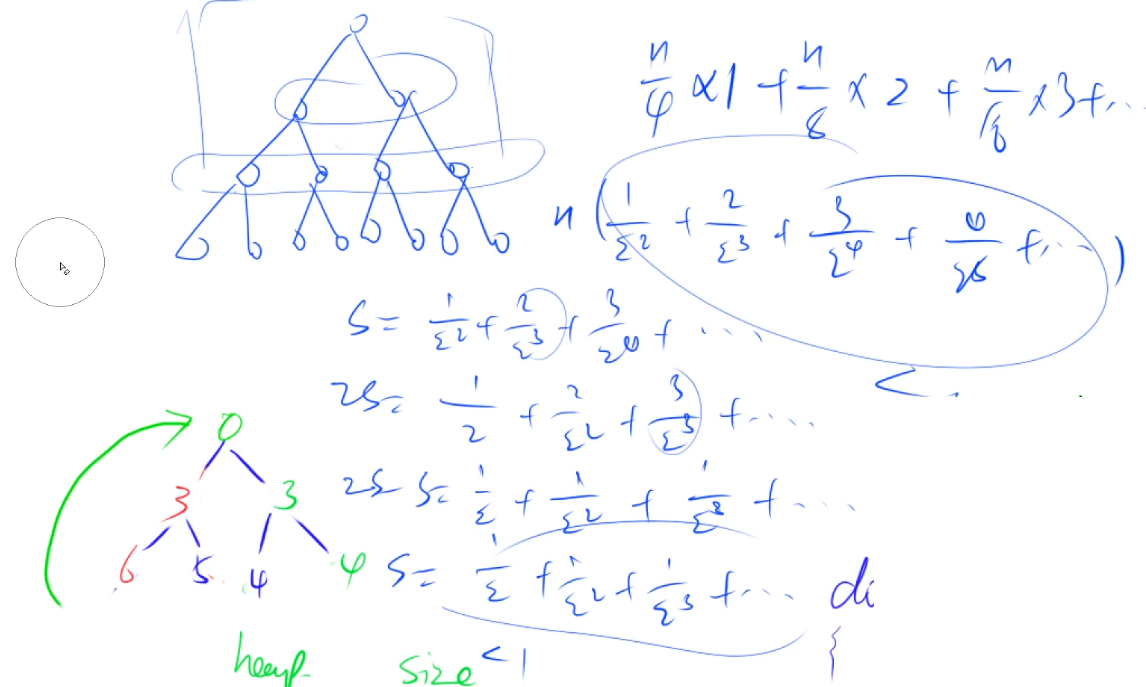 n/4 × 1 + n/8 × 2 + n/16 × 3 + ...
n ( 1/2^2 + 2/2^3 + 3/2^4 + 4/25 + ... )
S = 1/2^2 + 2/2^3 + 3/2^4 + ...
<
2S = 1/2 + 2/2^2 + 3/2^3 + ...
2S S = 1/2 + 1/2^2 + 1/2^3 + ...
S = 1/2 + 1/2^2 + 1/2^3 + ...
< 1
0
3 3
6 5 4 4
heap size
{